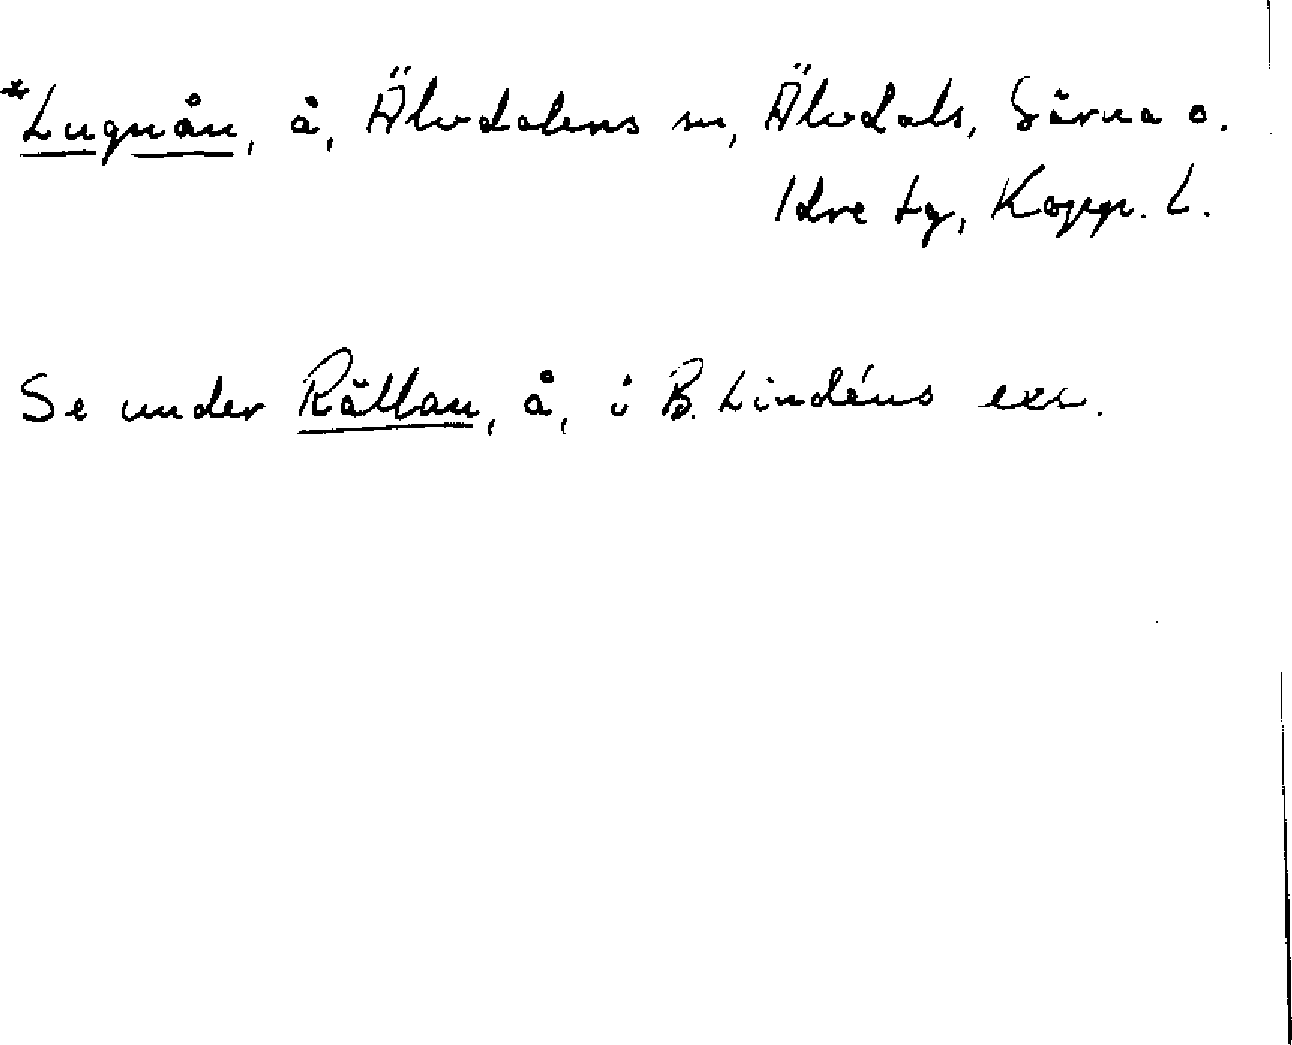 *Lugnån, å, Älvdalens sn, Älvdals, Särna o.
Idre tg, Kopp. L.
Se under Rällan, å, i B. Lindéns exc.